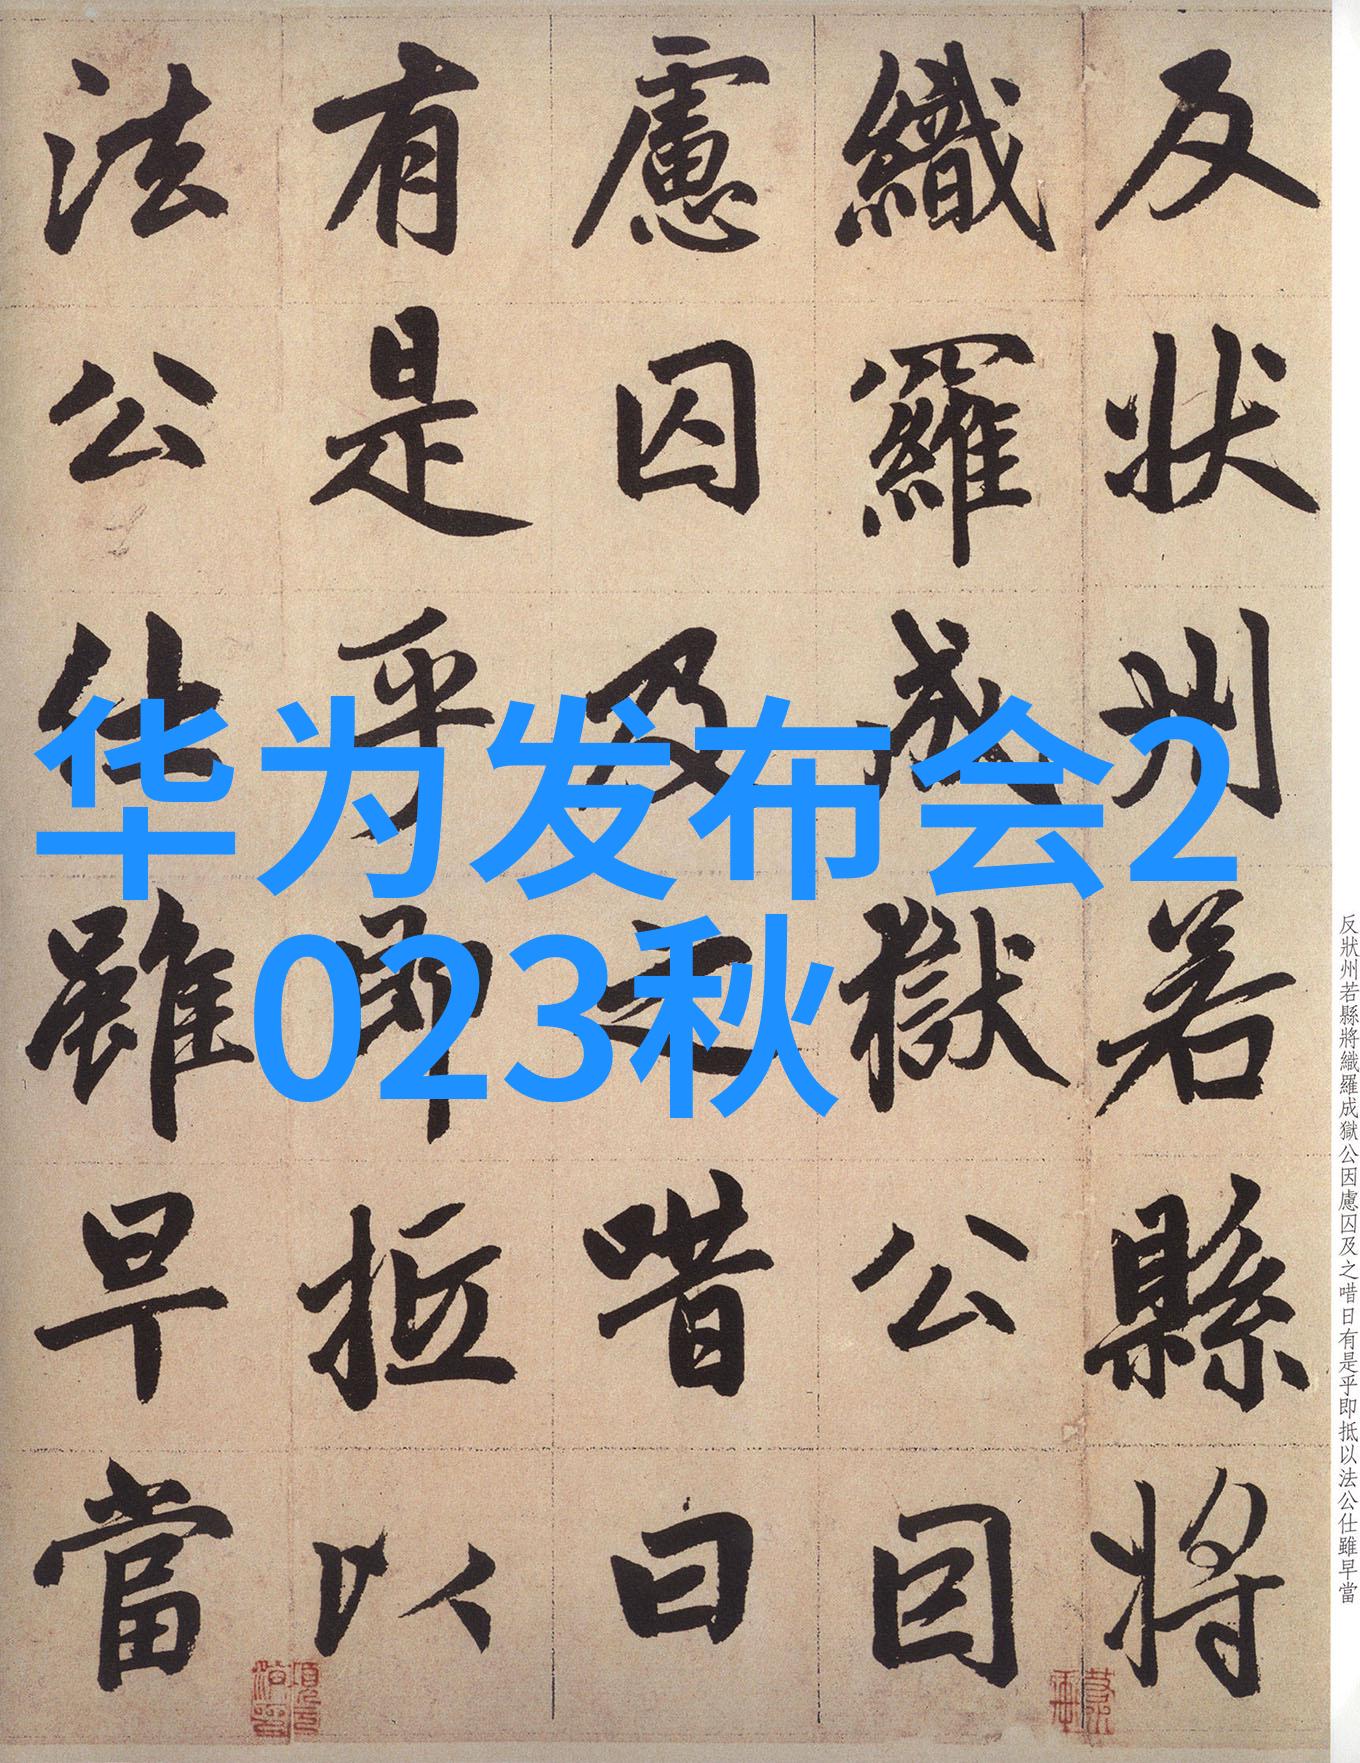 反状州若縣將
織羅成獄公因
慮囚及之唶曰
有是乎即抵以
法公仕雖早當
华为发布会2
023秋
反狀州若縣將織羅成獄公因慮囚及之唶日有是乎即抵以法公仕雖早當